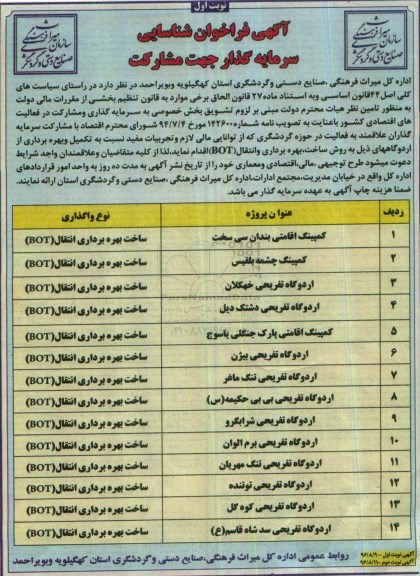 نوبت اول
آگهی فراخوان شناسایی
سرمایه گذار جهت مشارکت
اداره کل میراث فرهنگی،صنایع دستی وگردشگری استان کهگیلویه وبویراحمد در نظر دارد در راستای سیاست های
کلی اصل ۴۴قانون اساسی وبه استناد ماده۲۷ قانون الحاق برخی موارد به قانون تنظیم بخشی از مقررات مالی دولت
به منظور تامین نظر هیات محترم دولت مبنی بر لزوم تشویق بخش خصوصی به سرمایه گذاری ومشارکت در فعالیت
های اقتصادی کشور باعنایت به تصویب نامه شماره۱۴۲۶۰۰ مورخ ۹۴/۷/۴ شورای محترم اقتصاد با مشارکت سرمایه
گذاران علاقمند به فعالیت در حوزه گردشگری که از توانایی مالی لازم وتجربیات مفید نسبت به تکمیل وبهره برداری از
اردوگاههای ذیل به روش ساخت،بهره برداری وانتقال(BOT)اقدام نماید.لذا از کلیه متقاضیان وعلاقمندان واجد شرایط
دعوت میشود طرح توجیهی ،مالی،اقتصادی ومعماری خود را از تاریخ نشر آگهی به مدت ده روز به واحد امور قراردادهای
اداره کل واقع در خیابان مدیریت،مجتمع ادارات،اداره کل میراث فرهنگی ،صنایع دستی وگردشگری استان ارائه نمایند.
ضمنا هزینه چاپ آگهی به عهده سرمایه گذار می باشد.
ردیف عنوان پروژه نوع واگذاری
۱ کمپینگ اقامتی بندان سی سخت ساخت بهره برداری انتقال(BOT)
۲ کمپینگ چشمه بلقیس ساخت بهره برداری انتقال(BOT)
۳ اردوگاه تفریحی خهکلان ساخت بهره برداری انتقال(BOT)
۴ اردوگاه تفریحی دشتک دیل ساخت بهره برداری انتقال(BOT)
۵ کمپینگ اقامتی پارک جنگلی یاسوج ساخت بهره برداری انتقال(BOT)
۶ اردوگاه تفریحی بیژن ساخت بهره برداری انتقال(BOT)
۷ اردوگاه تفریحی تنگ ماغر ساخت بهره برداری انتقال(BOT)
۸ اردوگاه تفریحی بی بی حکیمه(س) ساخت بهره برداری انتقال(BOT)
۹ اردوگاه تفریحی شرابگرو ساخت بهره برداری انتقال(BOT)
۱۰ اردوگاه تفریحی برم الوان ساخت بهره برداری انتقال(BOT)
۱۱ اردوگاه تفریحی تنگ مهریان ساخت بهره برداری انتقال(BOT)
۱۲ اردوگاه تفریحی توتنده ساخت بهره برداری انتقال(BOT)
۱۳ اردوگاه تفریحی کوه گل ساخت بهره برداری انتقال(BOT)
۱۴ اردوگاه تفریحی سد شاه قاسم(ع) ساخت بهره برداری انتقال(BOT)
آگهی نوبت اول - ۹۶/۸/۹
آگهی نوبت دوم -۹۶/۸/۱۱
روابط عمومی اداره کل میراث فرهنگی،صنایع دستی وگردشگری استان کهگیلویه وبویراحمد